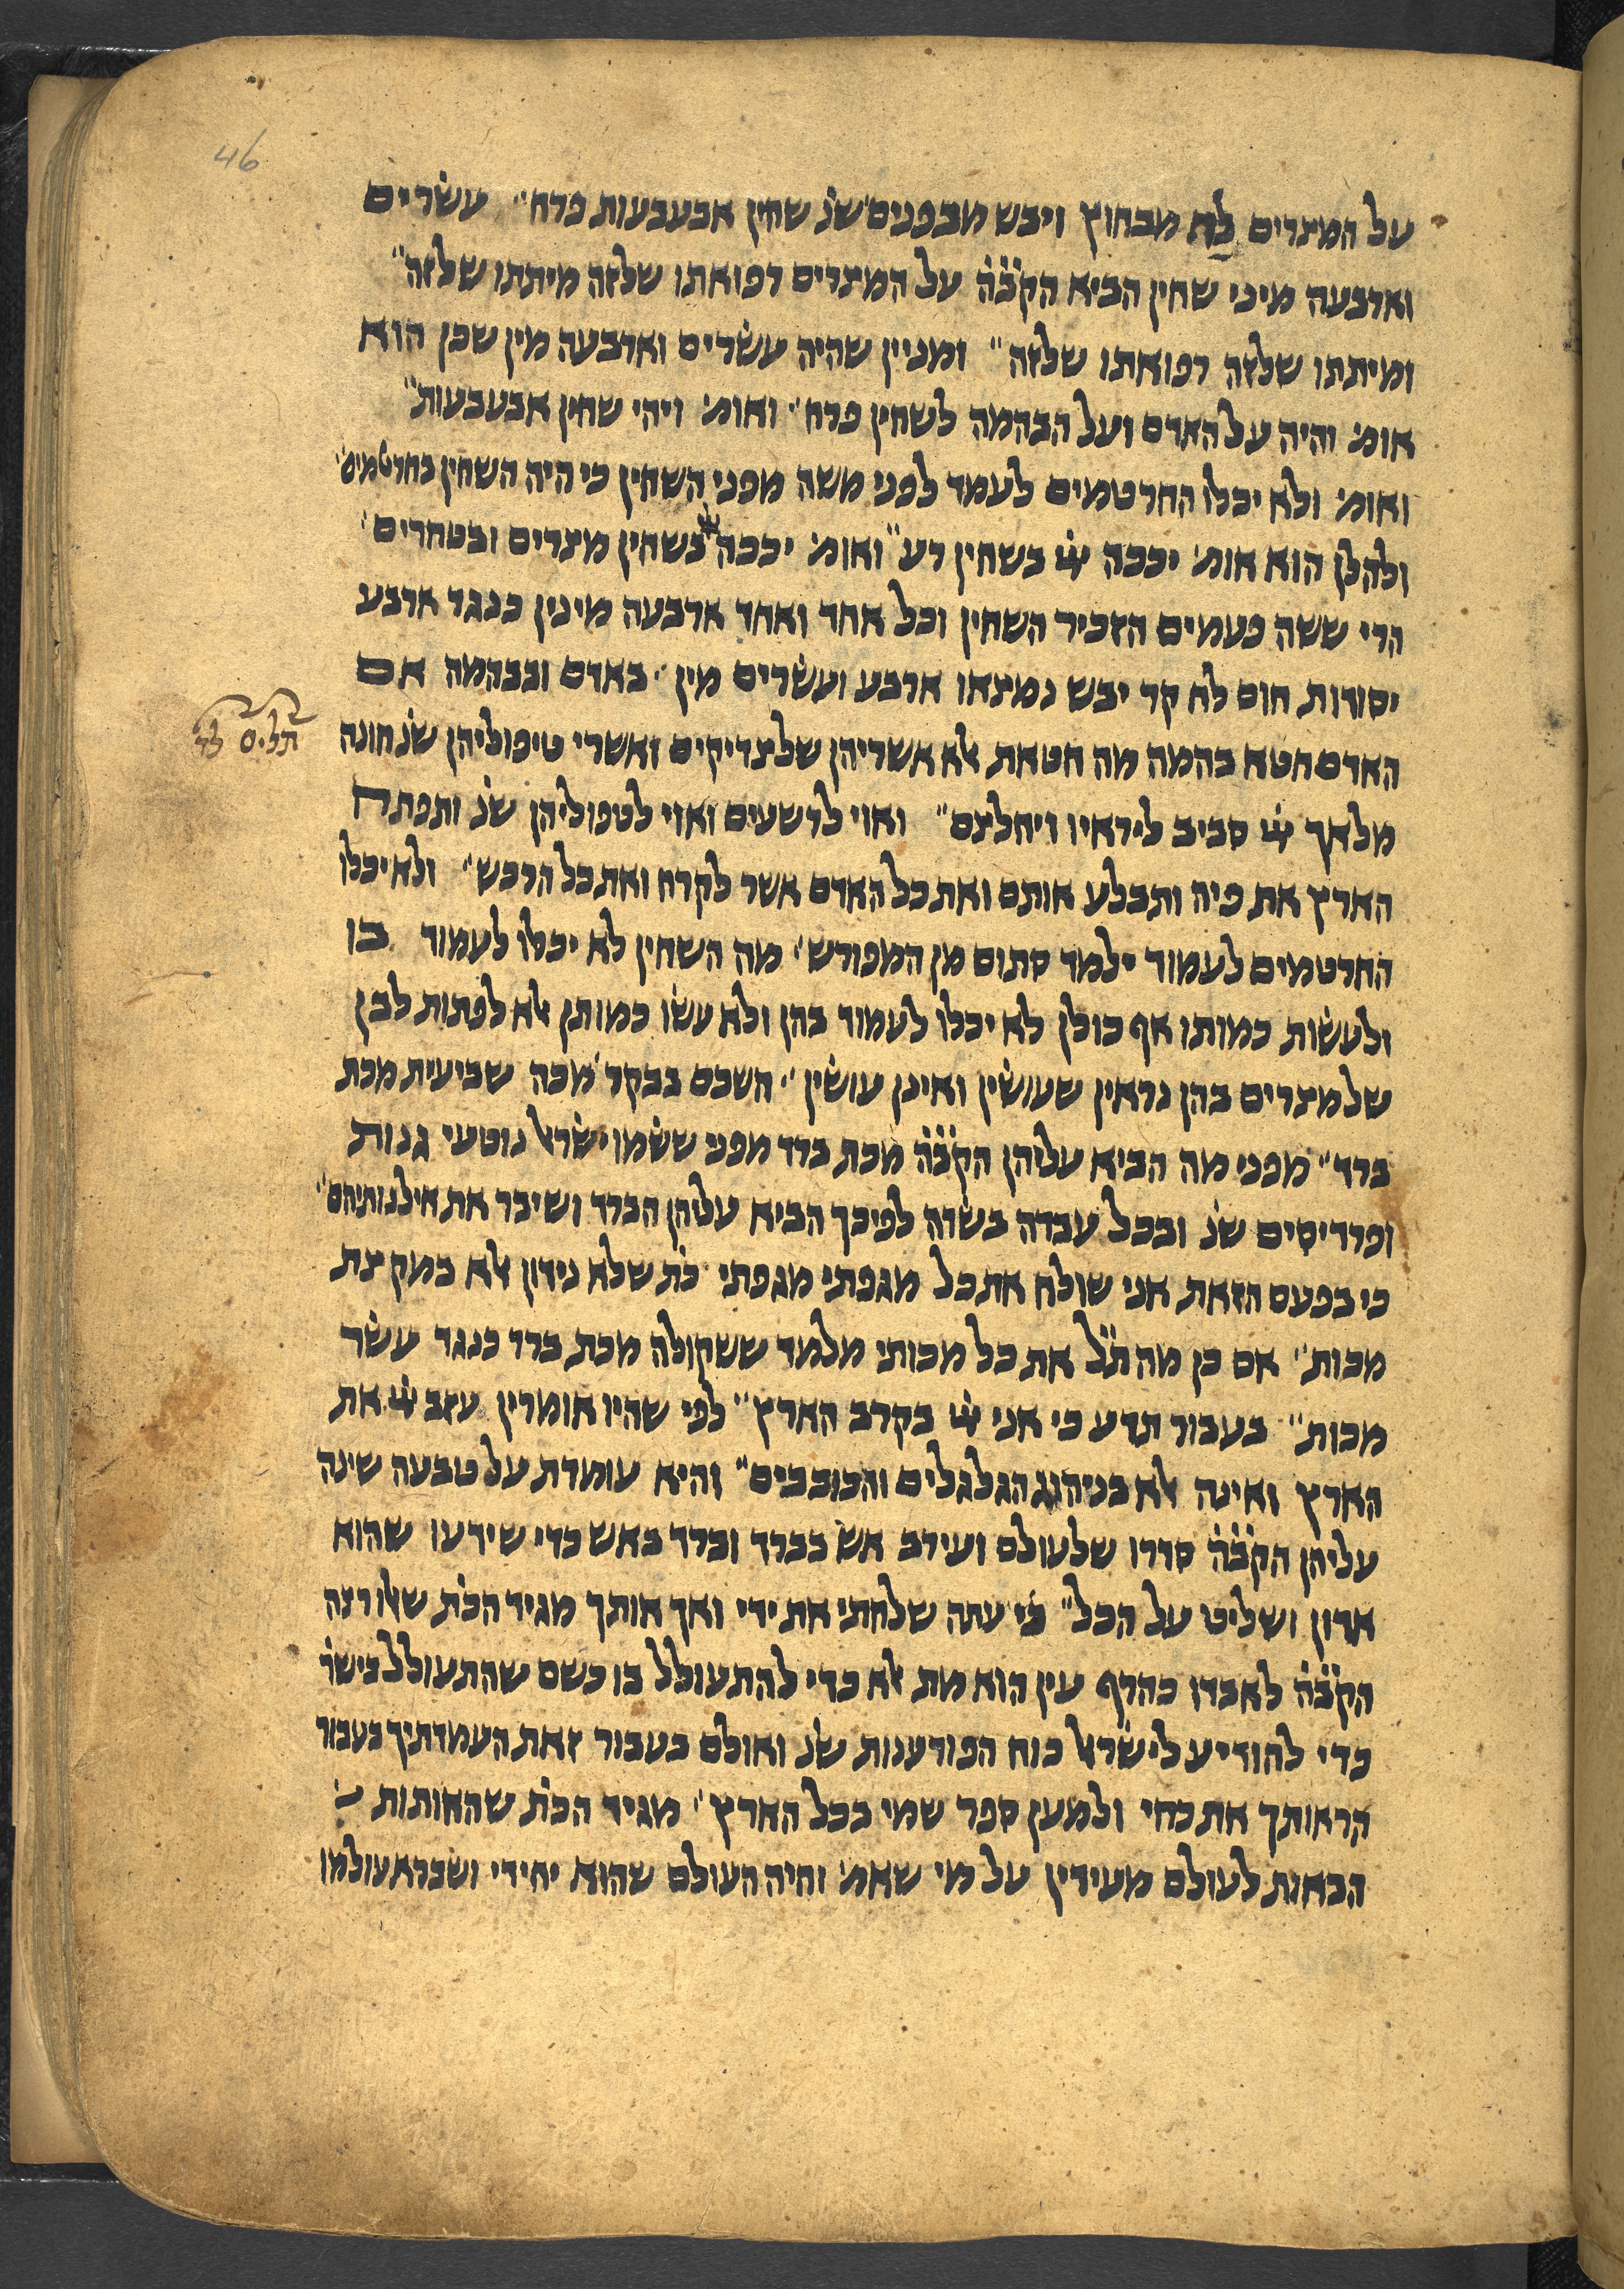 46
על המצרים לח מבחוץ ויבש מבפנים שנ׳ שחין אבעבעות פרח״ עשׂרים
וארבעה מיני שחין הביא הקׄבׄהׄ על המצרים רפואתו שלזה מיתתו שלזה״
ומיתתו שלזה רפואתו שלזה״ ומניין שהיה עשׂרים וארבעה מין שכן הוא
אומ׳ והיה על האדם ועל הבהמה לשחין פרח״ ואומ׳ ויהי שחין אבעבעות״
ואומ׳ ולא יכלו החרטמים לעמד לפני משה מפני השחין כי היה השחין בחרטמים״
ולהלן הוא אומ׳ יככה ײ בשחין רע״ ואומ׳ יככה ײ בשחין מצרים ובטחרים׳
הרי ששה פעמים הזכיר השחין וכל אחד ואחד ארבעה מינין כנגד ארבע
יסורות חום לח קר יבש נמצאו ארבע ועשׂרים מין׳ באדם ובבהמה אם
האדם חטא בהמה מה חטאת אלא אשריהן שלצדיקים ואשרי טיפוליהן שנ׳ חונה
תלים לד
מלאך ײ סביב ליראיו ויחלצם״ ואוי לרשעים ואוי לטפוליהן שנ׳ ותפתח
הארץ את פיה ותבלע אותם ואת כל האדם אשר לקרח ואת כל הרכש״ ולא יכלו
החרטמים לעמוד ילמד סתום מן המפורש׳ מה השחין לא יכלו לעמוד בו
ולעשׂות כמותו אף כולן לא יכלו לעמוד בהן ולא עשׂו כמותן אלא לפתות לבן
שלמצרים בהן נראין שעושׂין ואינן עושׂין״ השכם בבקר׳ מכה שביעית מכת
ברד״ מפני מה הביא עליהן הקׄבׄהׄ מכת ברד מפני ששׂמו ישׂראל נוטעי גנות
ופרדיסים שנ׳ ובכל עבדה בשׂדה לפיכך הביא עליהן הברד ושיבר את אילנותיהם״
כי בפעם הזאת אני שולח את כל מגפתי מגפתי כת׳ שלא נידון אלא במקצת
מכות״ אם כן מה תׄל את כל מכותי מלמד ששקולה מכת ברד כנגד עשׂר
מכות״ בעבור תדע כי אני ײ בקרב הארץ״ לפי שהיו אומרין עזב ײ את
הארץ ואינה אלא בניהוג הגלגלים והכוכבים״ והיא עומדת על טבעה שינה
עליהן הקׄבׄהׄ סדרו שלעולם ועירב אש בברד וברד באש כדי שידעו שהוא
אדון ושליט על הכל״ כי עתה שלחתי את ידי ואך אותך מגיד הכת׳ שאלו רצה
הקׄבׄהׄ לאבדן כהרף עין הוא מת אלא כדי להתעולל בו כשם שהתעולל בישׂר׳
כדי להודיע לישׂראל כוח הפורענות שנ׳ ואולם בעבור זאת העמדתיך בעבור
הראותך את כחי ולמען ספר שמי בכל הארץ״ מגיד הכת׳ שהאותות
הבאות לעולם מעידין על מי שאמ׳ והיה העולם שהוא יחידי ושברא עולמו